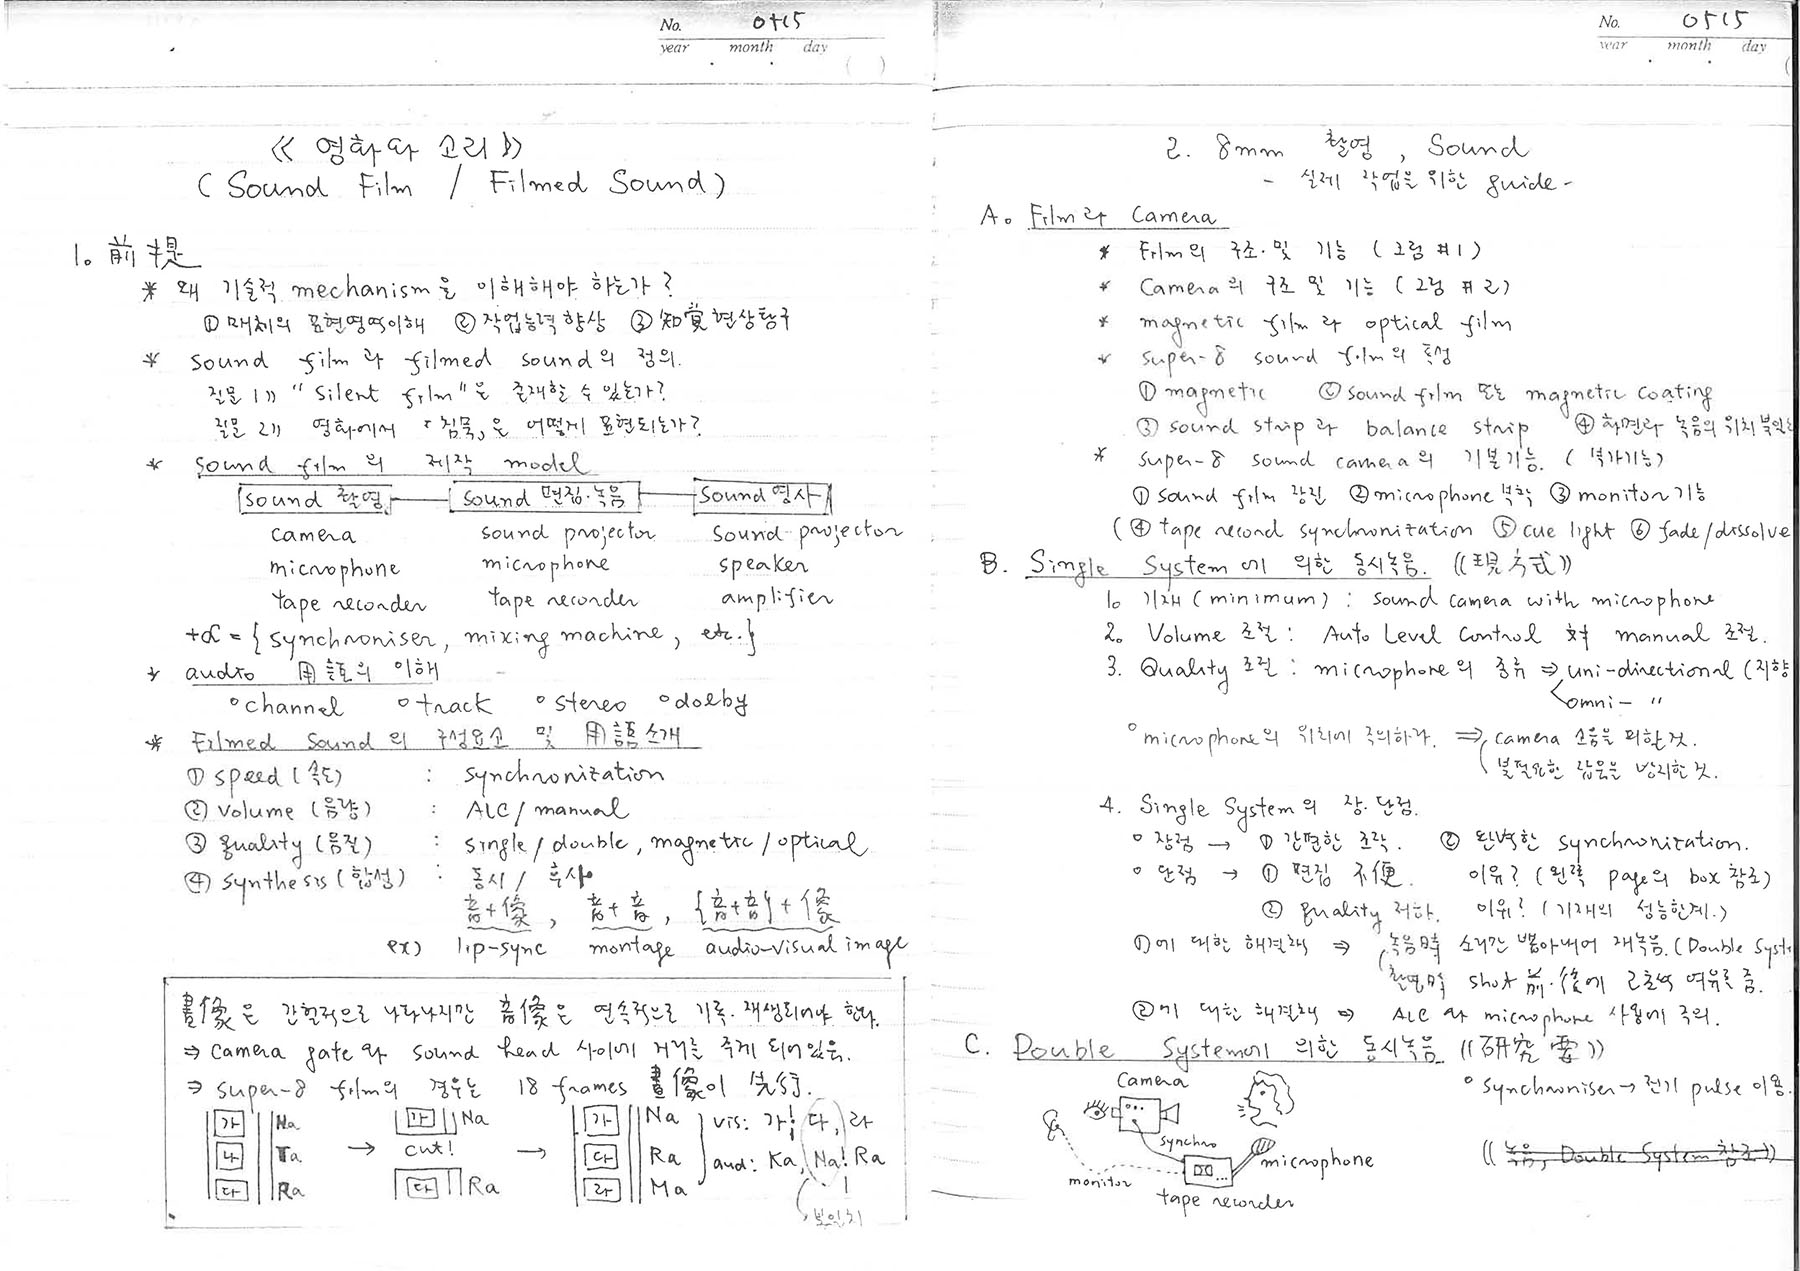 No. 0515
year month day
( )
《 영화와 소리 》
( Sound Film / Filmed Sound )
1. 前提
* 왜 기술적 mechanism을 이해해야 하는가?
① 매체의 표현영역이해 ② 작업능력 향상 ③ 知覺현상탐구
* sound film과 filmed sound의 정의.
질문 1》 "silent film"은 존재할 수 있는가?
질문 2》 영화에서 「침묵」은 어떻게 표현되는가?
* sound film의 제작 model
sound 촬영 sound 편집·녹음 sound 영사
camera sound projector sound projector
microphone microphone speaker
tape recorder tape recorder amplifier
+α = { synchroniser, mixing machine, etc. }
* audio 用語의 이해
° channel ° track ° stereo ° dolby
* Filmed Sound의 구성요소 및 用語소개
① speed (속도) : synchronization
② volume (음량) : ALC / manual
③ quality (음질) : single / double, magnetic / optical
④ synthesis (합성) : 동시 / 후사
音+像, 音+音, {音+音}+像
ex) lip-sync montage audio-visual image
畫像은 간헐적으로 나타나지만 音像은 연속적으로 기록·재생되어야 한다.
⇒ camera gate와 sound head 사이에 거리를 두게 되어있음.
⇒ super-8 film의 경우는 18 frames 畫像이 先行.
가 Na 나 Ta 다 Ra
→ 가 Na cut! 다 Ra
→ 가 Na 다 Ra 라 Ma
vis: 가! 다, 라
aud: Ka, Na! Ra
불일치
No. 0515
year month day
(
2. 8mm 촬영, Sound
- 실제 작업을 위한 guide -
A. Film과 Camera
* Film의 구조 및 기능 ( 그림 #1 )
* Camera의 구조 및 기능 ( 그림 #2 )
* magnetic film과 optical film
* super-8 sound film의 특성
① magnetic ② sound film 또는 magnetic coating
③ sound strip과 balance strip ④ 화면과 녹음의 위치 불일치
* super-8 sound camera의 기본기능. ( 부가기능 )
① sound film 장진 ② microphone 부착 ③ monitor 기능
( ④ tape record synchronization ⑤ cue light ⑥ fade/dissolve
B. Single System에 의한 동시녹음. ((現方式))
1. 기재 (minimum) : sound camera with microphone
2. Volume 조절 : Auto Level Control 対 manual 조절.
3. Quality 조절 : microphone의 종류 ⇒ uni-directional (지향
omni- "
° microphone의 위치에 주의하라. ⇒ camera 소음을 피한 것.
불필요한 잡음을 방지한 것.
4. Single System의 장·단점.
° 장점 → ① 간편한 조작. ② 완벽한 synchronization.
° 단점 → ① 편집 不便. 이유? (왼쪽 page의 box 참조)
② quality 저하. 이유? (기재의 성능한계.)
①에 대한 해결책 ⇒ 녹음時 소리만 뽑아내어 재녹음. (Double Syst
촬영時 shot 前·後에 2초씩 여유를 줌.
②에 대한 해결책 ⇒ ALC와 microphone 사용에 주의.
C. Double System에 의한 동시녹음. ((研究要))
camera
° synchroniser → 전기 pulse 이용.
synchro
microphone
monitor
tape recorder
((녹음, Double System 참조))